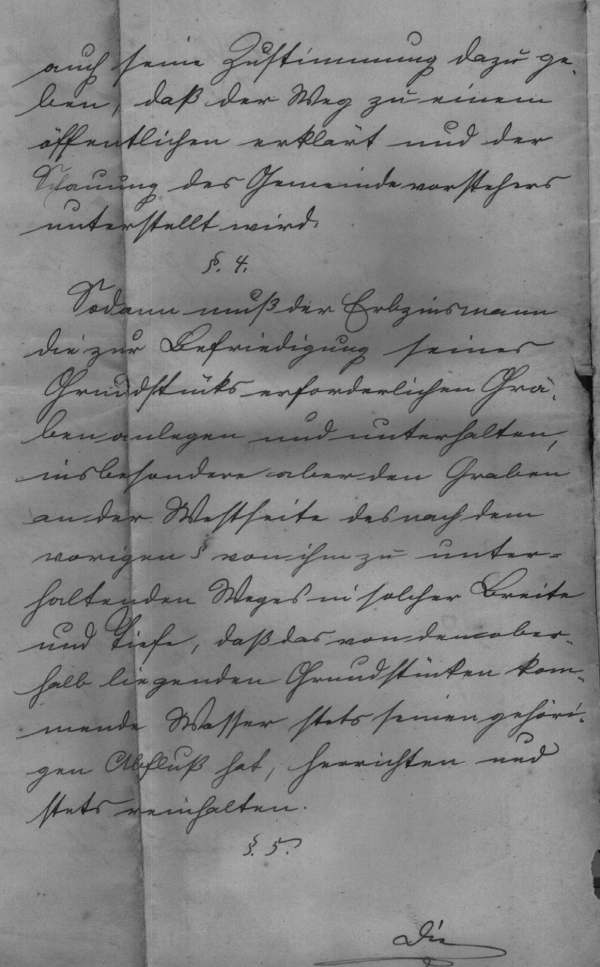 auch seine Zustimmung dazu ge-
ben, daß der Weg zu einem
öffentlichen erklärt und der
Schauung des Gemeindevorstehers
unterstellt wird.
§. 4.
Sodann muß der Erbzinsmann
die zur Befriedigung seines
Grundstücks erforderlichen Grä-
ben anlegen und unterhalten,
insbesondere aber den Graben
an der Westseite des nach dem
vorigen § von ihm zu unter-
haltenden Weges in solcher Breite
und Tiefe, daß das von den ober-
halb liegenden Grundstücken kom-
mende Wasser stets seinen gehöri-
gen Abfluß hat, herrichten und
stets reinhalten.
§. 5.
Die